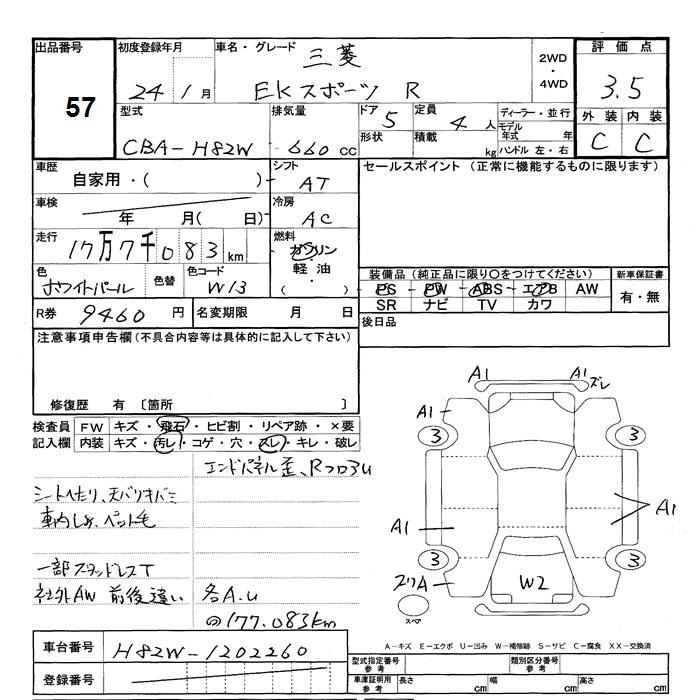 出品番号
57
初度登録年月
24年 1月
車名・グレード
三菱
EKスポーツ R
2WD
・
4WD
評価点
3.5
外装 内装
C C
型式
CBA-H82W
排気量
660 cc
ドア 5
形状
定員 4人
積載 kg
ディーラー・並行
モデル年式 年
ハンドル 左・右
車歴
自家用・( )
シフト
AT
セールスポイント (正常に機能するものに限ります)
車検
年 月( 日)
冷房
AC
走行
17万7千083km
燃料
ガソリン
・
軽油
( )
色
ホワイトパール
色替
色コード
W13
装備品 (純正品に限り〇をつけてください)
PS PW ABS エアB AW
SR ナビ TV カワ
新車保証書
有・無
R券 9460 円
名変期限 月 日
後日品
注意事項申告欄 (不具合内容等は具体的に記入して下さい)
修復歴 有 〔箇所 〕
検査員
記入欄
FW キズ・飛石・ヒビ割・リペア跡・×要
内装 キズ・汚れ・コゲ・穴・スレ・キレ・破レ
エンドパネル歪、Rフロアu
シートへたり、天バリキバミ
車内しみ、ペット毛
一部スタッドレスT
社外AW 前後違い
各A.u
177.083km
A1
A1 ズレ
A1
3
3
A1
A1
3
3
スリA
W2
スペア
A-キズ E-エクボ U-凹み W-補修跡 S-サビ C-腐食 XX-交換済
車台番号
H82W-1202260
登録番号
型式指定番号
参考
類別区分番号
参考
車庫証明用
参考
長さ cm
幅 cm
高さ cm